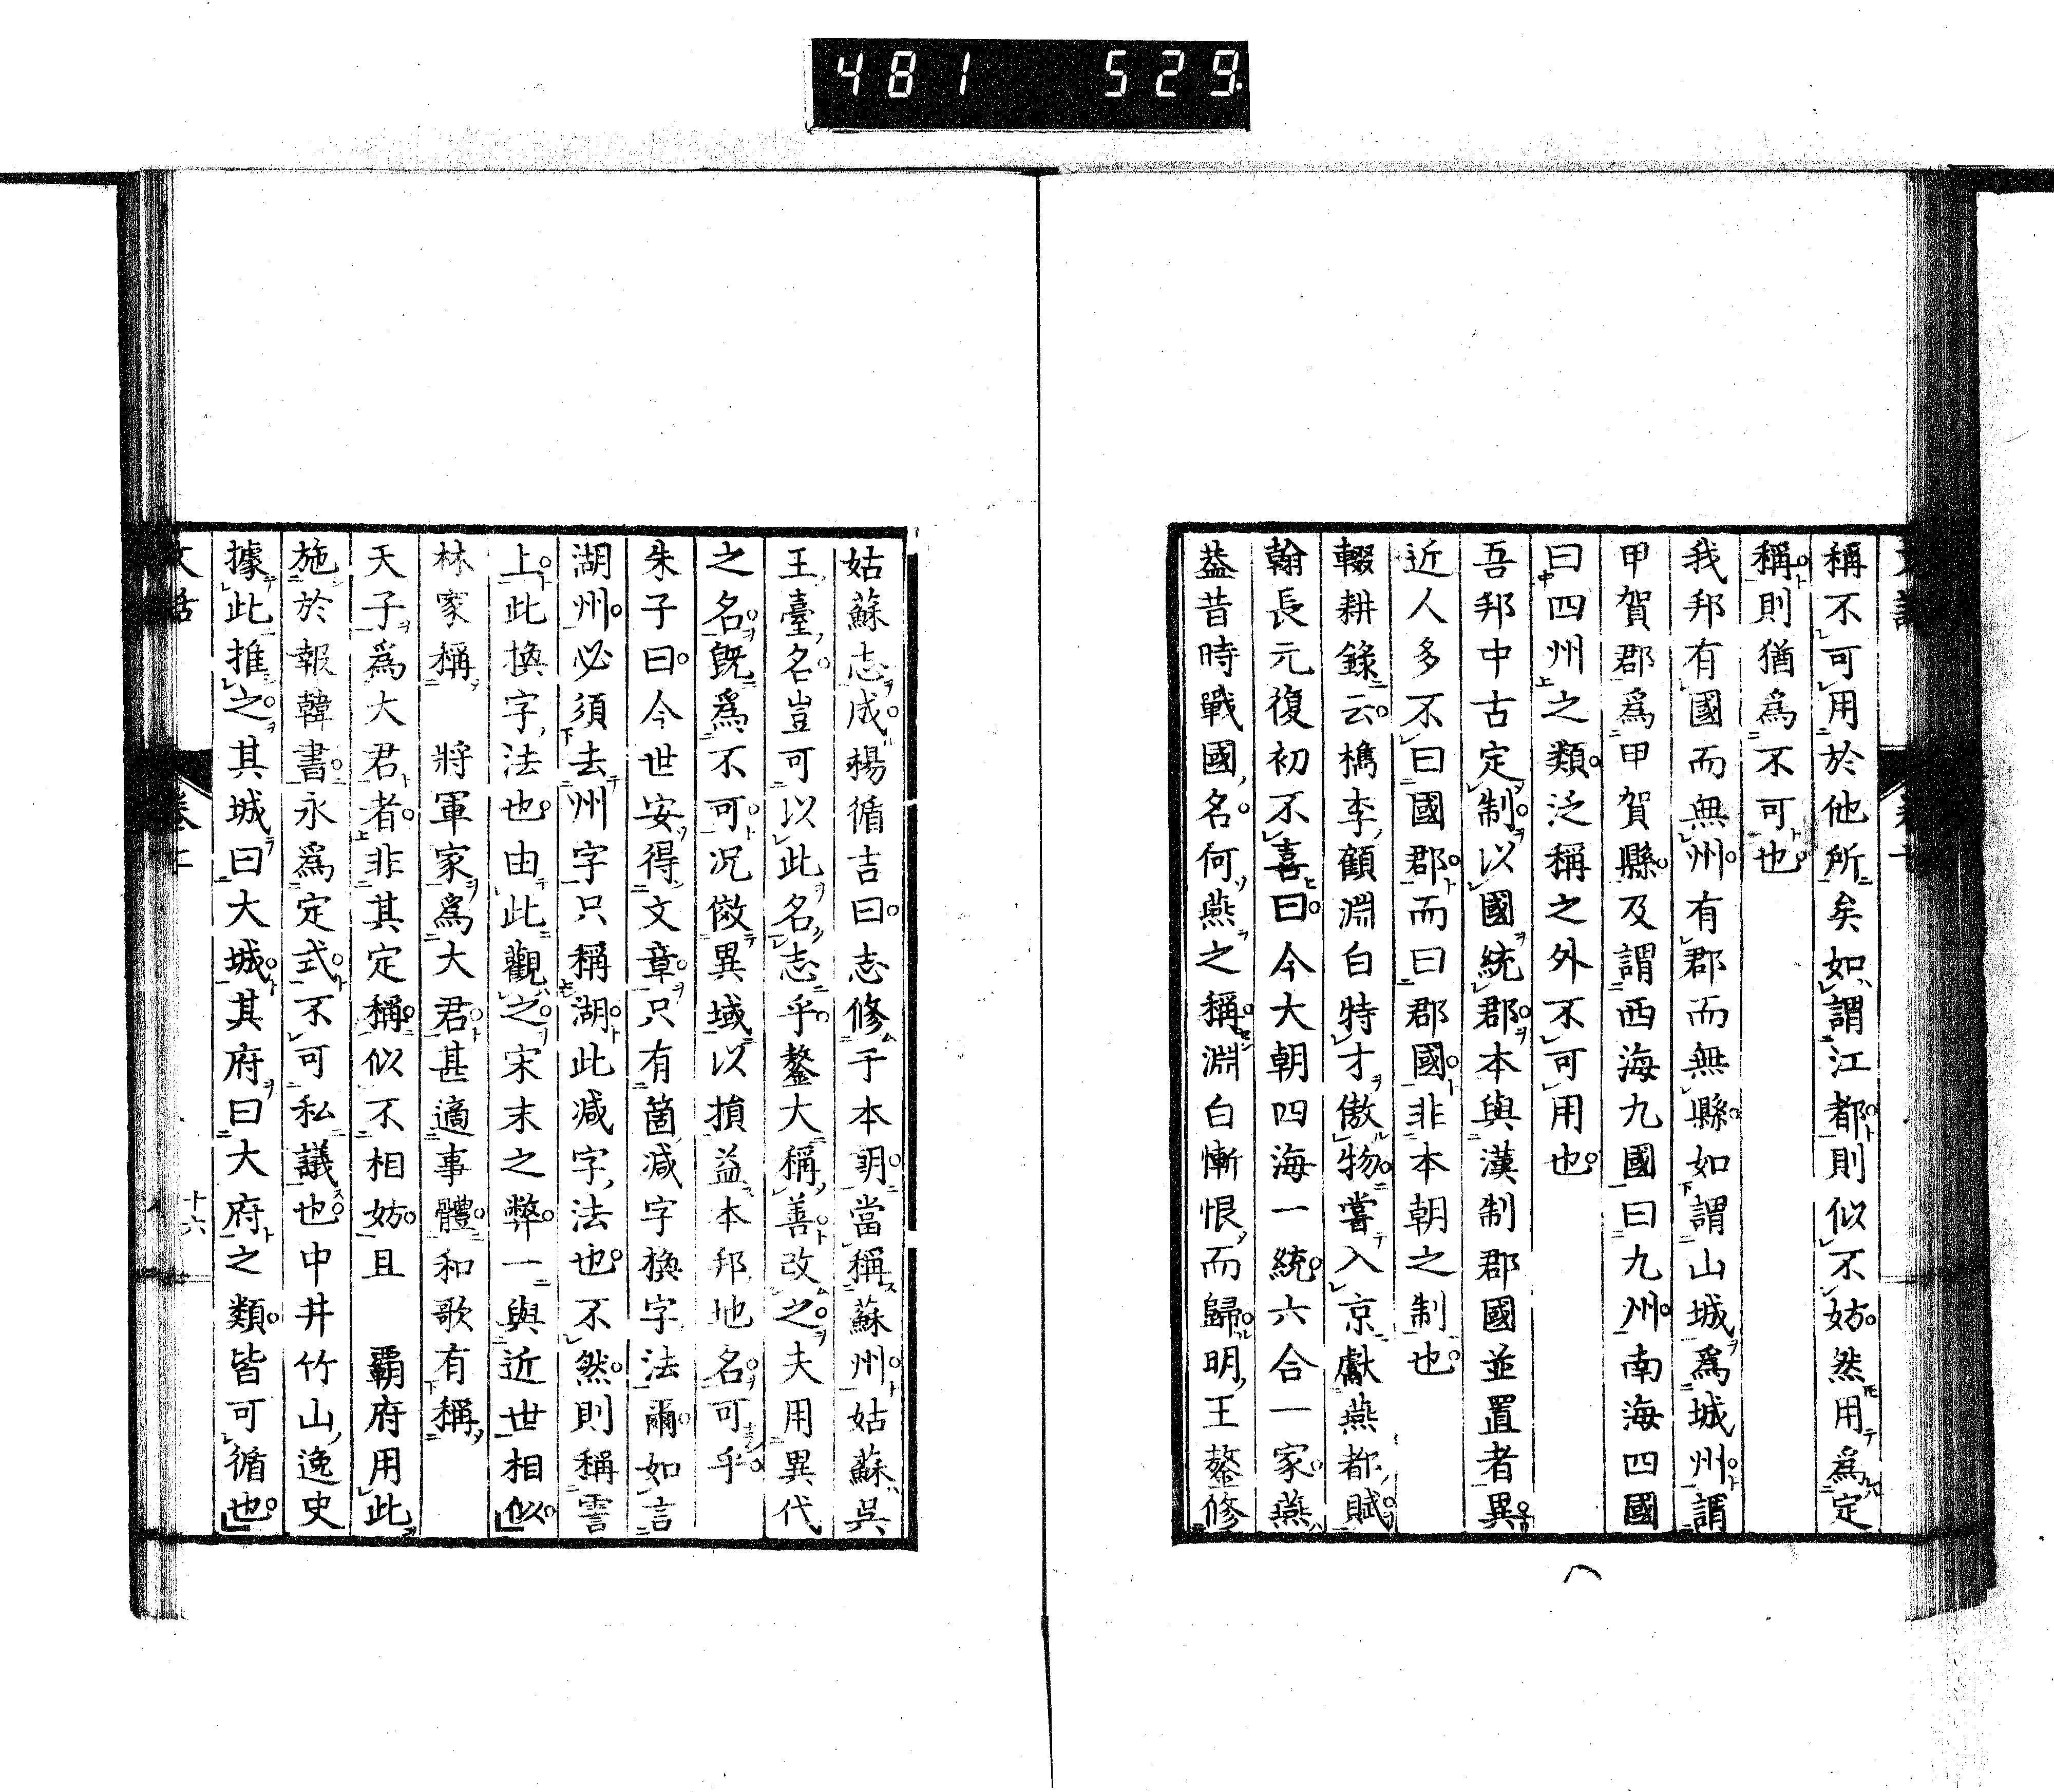 481 529
稱不可用於他所矣如謂江都則似不妨然用爲定
稱則猶爲不可也
我邦有國而無州有郡而無縣如謂山城爲城州謂
甲賀郡爲甲賀縣及謂西海九國曰九州南海四國
曰四州之類泛稱之外不可用也
吾邦中古定制以國統郡本與漢制郡國並置者異
近人多不曰國郡而曰郡國非本朝之制也
輟耕錄云檇李顧淵白特才傲物嘗入京獻燕都賦
翰長元復初不喜曰今大朝四海一統六合一家燕
葢昔時戰國名何燕之稱淵白慚恨而歸明王鏊修
姑蘇志成楊循吉曰志修于本朝當稱蘇州姑蘇吳
王臺名豈可以此名志乎鏊大稱善改之夫用異代
之名既爲不可况倣異域以損益本邦地名可乎
朱子曰今世安得文章只有箇减字換字法爾如言
湖州必須去州字只稱湖此减字法也不然則稱霅
上此換字法也由此觀之宋末之弊一與近世相似
林家稱 將軍家爲大君甚適事體和歌有稱
天子爲大君者非其定稱似不相妨且 覇府用此
施於報韓書永爲定式不可私議也中井竹山逸史
據此推之其城曰大城其府曰大府之類皆可循也
文話 卷 十六